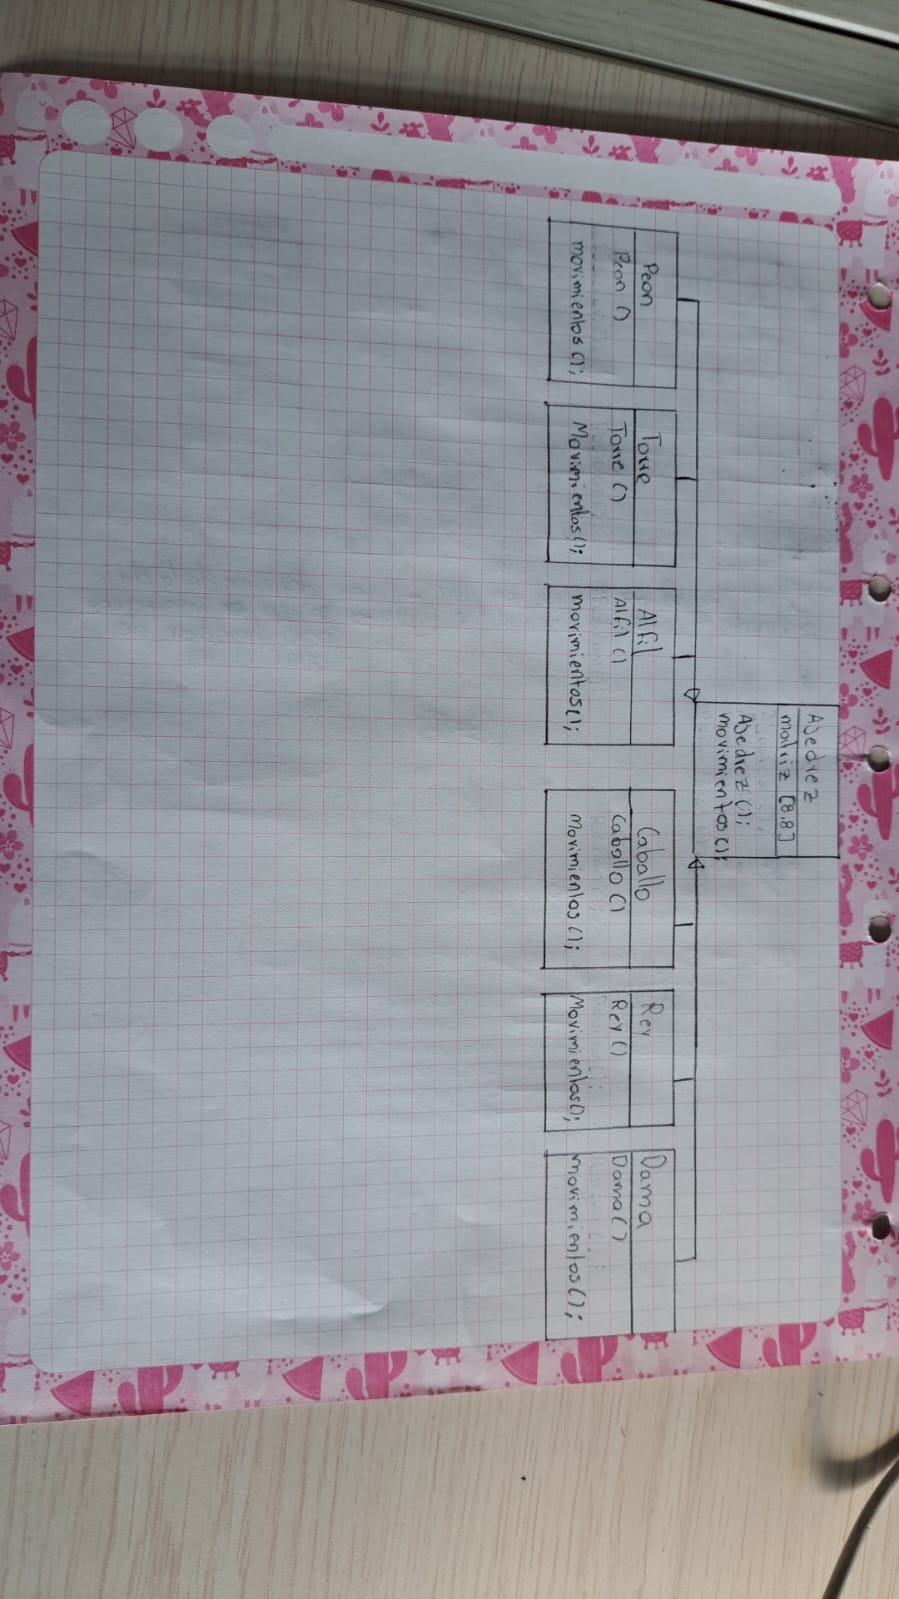 Ajedrez
matriz [8.8]
Ajedrez();
movimientos();
Peon
Peon ()
movimientos();
Torre
Torre ()
Movimientos();
Alfil
Alfil ()
movimientos();
Caballo
Caballo ()
Movimientos ();
Rey
Rey ()
Movimientos();
Dama
Dama()
movimientos();